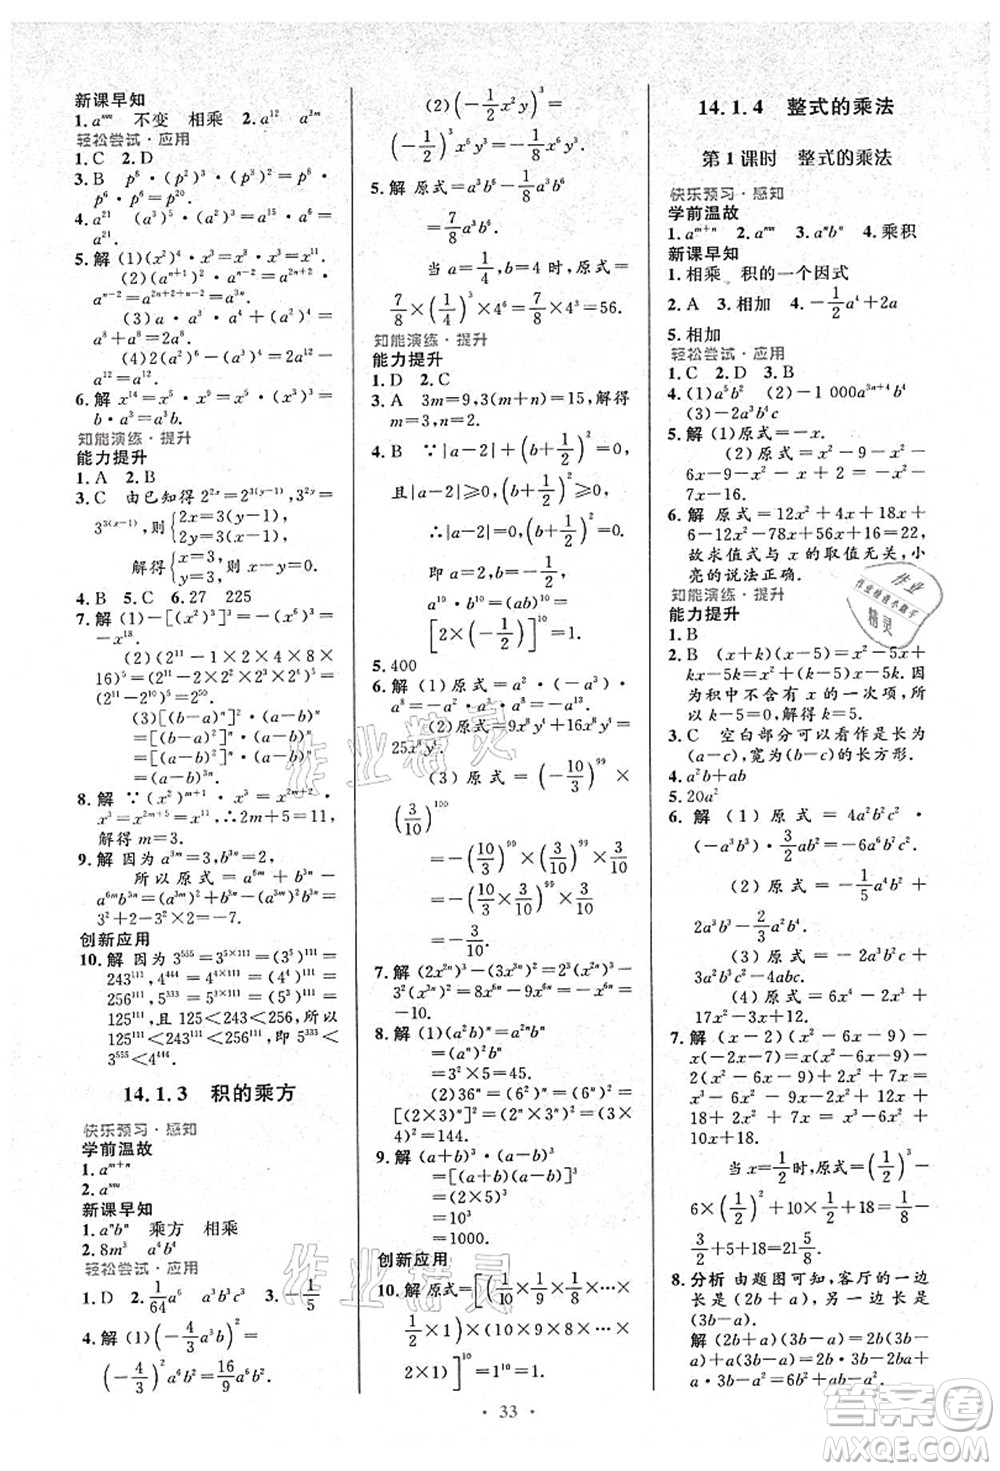 新课早知
1. a^{mn} 不变 相乘 2. a^{12}
轻松尝试·应用
1. C 2. D
3. B p^6·(p^2)^3·(p^2)^4=p^6·
p^6·p^8=p^{20}.
4. a^{21} (a^3)^5·(a^2)^3=a^{15}·a^6=
a^{21}.
5. 解 (1)(x^2)^4·x^2=x^8·x^2=x^{10}.
(2)(a^{n+1})^2·(a^2)^n·
a^{n-2}=a^{2n+2+2n}·a^{n-2}=
(3)a·a^3·a^4+(a^2)^4=
a^8+a^8=2a^8.
(4)2(a^2)^6-(a^3)^4=2a^{12}-
a^{12}=a^{12}.
6. 解 x^{14}=x^5·x^9=x^5·x^5·x^4=
b·b·a^3=a^3b.
知能演练·提升
能力提升
1. A 2. B
3. C 由已知得 2^{2x}=2^{3(y-1)}, 3^{2y}=
3^{3(x-1)}, 则 {2x=3(y-1),
2y=3(x-1),
解得 {x=3,
y=3.
4. B 5. C 6. 27 225
7. 解 (1)-[(x^2)^3]^3=-(x^2)^9=
-x^{18}.
(2)(2^{11}-1×2×4×8×
16)^5=(2^{11}-2×2^2×2^3×2^4)^5=
(2^{11}-2^{10})^5=2^{50}.
(3)[(b-a)^n]^2·(b-a)^n
=[(b-a)^n]^2·(b-a)^n
=(b-a)^{2n}·(b-a)^n
=(b-a)^{3n}.
8. 解 ∵(x^2)^{m+1}·x^3=x^{2m+2}·
x^3=x^{2m+5}=x^{11},∴2m+5=11,
解得 m=3.
9. 解 因为 a^{3m}=3,b^{3n}=2,
所以原式=a^{6m}+b^{3n}-
a^{6m}b^{3n}=(a^{3m})^2+b^{3n}-(a^{3m})^2b^{3n}=
3^2+2-3^2×2=-7.
创新应用
10. 解 因为 3^{555}=3^{5×111}=(3^5)^{111}=
243^{111},4^{444}=4^{4×111}=(4^4)^{111}=
256^{111},5^{333}=5^{3×111}=(5^3)^{111}=
125^{111},125<243<256,所以
125^{111}<243^{111}<256^{111},即 5^{333}<
3^{555}<4^{444}.
14.1.3 积的乘方
快乐预习·感知
学前温故
1. a^{m+n}
2. a^{mn}
新课早知
1. a^nb^n 乘方 相乘
2. 8m^3 a^4b^2
轻松尝试·应用
1. D 2. \frac{1}{64}a^6 a^3b^3c^3 3. -\frac{1}{5}
4. 解 (1)(-\frac{4}{3}a^3b)^2=
(-\frac{4}{3})^2a^6b^2=\frac{16}{9}a^6b^2.
(2)(-\frac{1}{2}x^2y)^3=
(-\frac{1}{2})^3x^6y^3=-\frac{1}{8}x^6y^3.
5. 解 原式=a^3b^6-\frac{1}{8}a^3b^6=
\frac{7}{8}a^3b^6.
当 a=\frac{1}{4},b=4 时,原式=
\frac{7}{8}×(\frac{1}{4})^3×4^6=\frac{7}{8}×4^3=56.
知能演练·提升
能力提升
1. D 2. C
3. A 3m=9,3(m+n)=15,解得
m=3,n=2.
4. B ∵|a-2|+(b+\frac{1}{2})^2=0,
且|a-2|≥0,(b+\frac{1}{2})^2≥0,
∴|a-2|=0,(b+\frac{1}{2})^2=0.
即 a=2,b=-\frac{1}{2}.
a^{10}·b^{10}=(ab)^{10}=
[2×(-\frac{1}{2})]^{10}=1.
5. 400
6. 解 (1)原式=a^2·(-a^3)·
a^6=-a^2·a^3·a^6=-a^{11}.
(2)原式=9x^8y^4+16x^8y^4=
25x^8y^4.
(3)原式=(-\frac{10}{3})^{99}×
(\frac{3}{10})^{100}
=-(\frac{10}{3})^{99}×(\frac{3}{10})^{99}×\frac{3}{10}
=-(\frac{10}{3}×\frac{3}{10})^{99}×\frac{3}{10}
=-\frac{3}{10}.
7. 解 (2x^{2n})^3-(3x^{3n})^2=2^3x^{6n}-
3^2(x^{2n})^3=8x^{6n}-9x^{6n}=-x^{6n}=
-10.
8. 解 (1)(a^2b)^n=a^{2n}b^n
=(a^n)^2·b^n
(2)36^n=(6^2)^n=(6^n)^2
=[(2×3)^n]^2=(2^n×3^n)^2=
(4×3)^2=144.
9. 解 (a+b)^3·(a-b)^3
=[(a+b)(a-b)]^3
=(2×5)^3
=10^3
=1000.
创新应用
10. 解 原式=[(\frac{1}{10}×\frac{1}{9}×…×
\frac{1}{2}×1)×(10×9×8×…×
2×1)]^{10}=1^{10}=1.
14.1.4 整式的乘法
第1课时 整式的乘法
快乐预习·感知
学前温故
1. a^{m+n} 2. a^{mn} 3. a^nb^n 4. 乘积
新课早知
1. 相乘 积的一个因式
2. A 3. 相加 4. -\frac{1}{2}a^4+2a
5. 相加
轻松尝试·应用
1. C 2. D 3. B
4. (1)a^5b^2 (2)-1 000a^{3n+4}b^4
(3)-2a^3b^2
5. 解 (1)原式=-x.
(2)原式=x^2-9-x^2+
6x-9=-x^2+x^2+6x-9+
7x-16.
6. 解 原式=12x^2+4x+18x+
6-12x^2-78x+56x+16=22,
故求值式与 x 的取值无关,小
亮的说法正确.
知能演练·提升
能力提升
1. B
2. B (x+k)(x-5)=x^2-5x+
kx-5k=x^2+(k-5)x-5k,因
为积中不含 x 的一次项,所以
k-5=0,解得 k=5.
3. C 空白部分可以看作是长为
(a-c),宽为(b-c)的长方形.
4. a^2b+ab
5. 20a^2
6. 解 (1)原式=4a^2b^2·
(-a^3b^3c)·\frac{3}{2}a=-6a^6b^5c.
(2)原式=-\frac{1}{5}a^2b^2+
2a^3b^2-\frac{2}{3}a^2b^3.
(3)原式=2a^2b-4abc-
2a^2b=-4abc.
(4)原式=6x^2-20x+
16x^2-3x=22x^2-23x.
7. 解 (x-2)(x^2-6x-9)-
x(x-5)(x-3)=x^3-6x^2-9x-
当 x=\frac{1}{2}时,原式=(\frac{1}{2})^3-
6×(\frac{1}{2})^2+10×\frac{1}{2}+12=\frac{1}{8}-
\frac{3}{2}+
8. 分析 由题图可知,客厅的一边
长是(2b+a),另一边长是
(3b-a).
解 (2b+a)(3b-a)
=6b^2-2ab+3ab-a^2
=6b^2+ab-a^2.
· 33 ·
作业精灵
作业精灵
作业精灵
答案圈
MXQE.COM